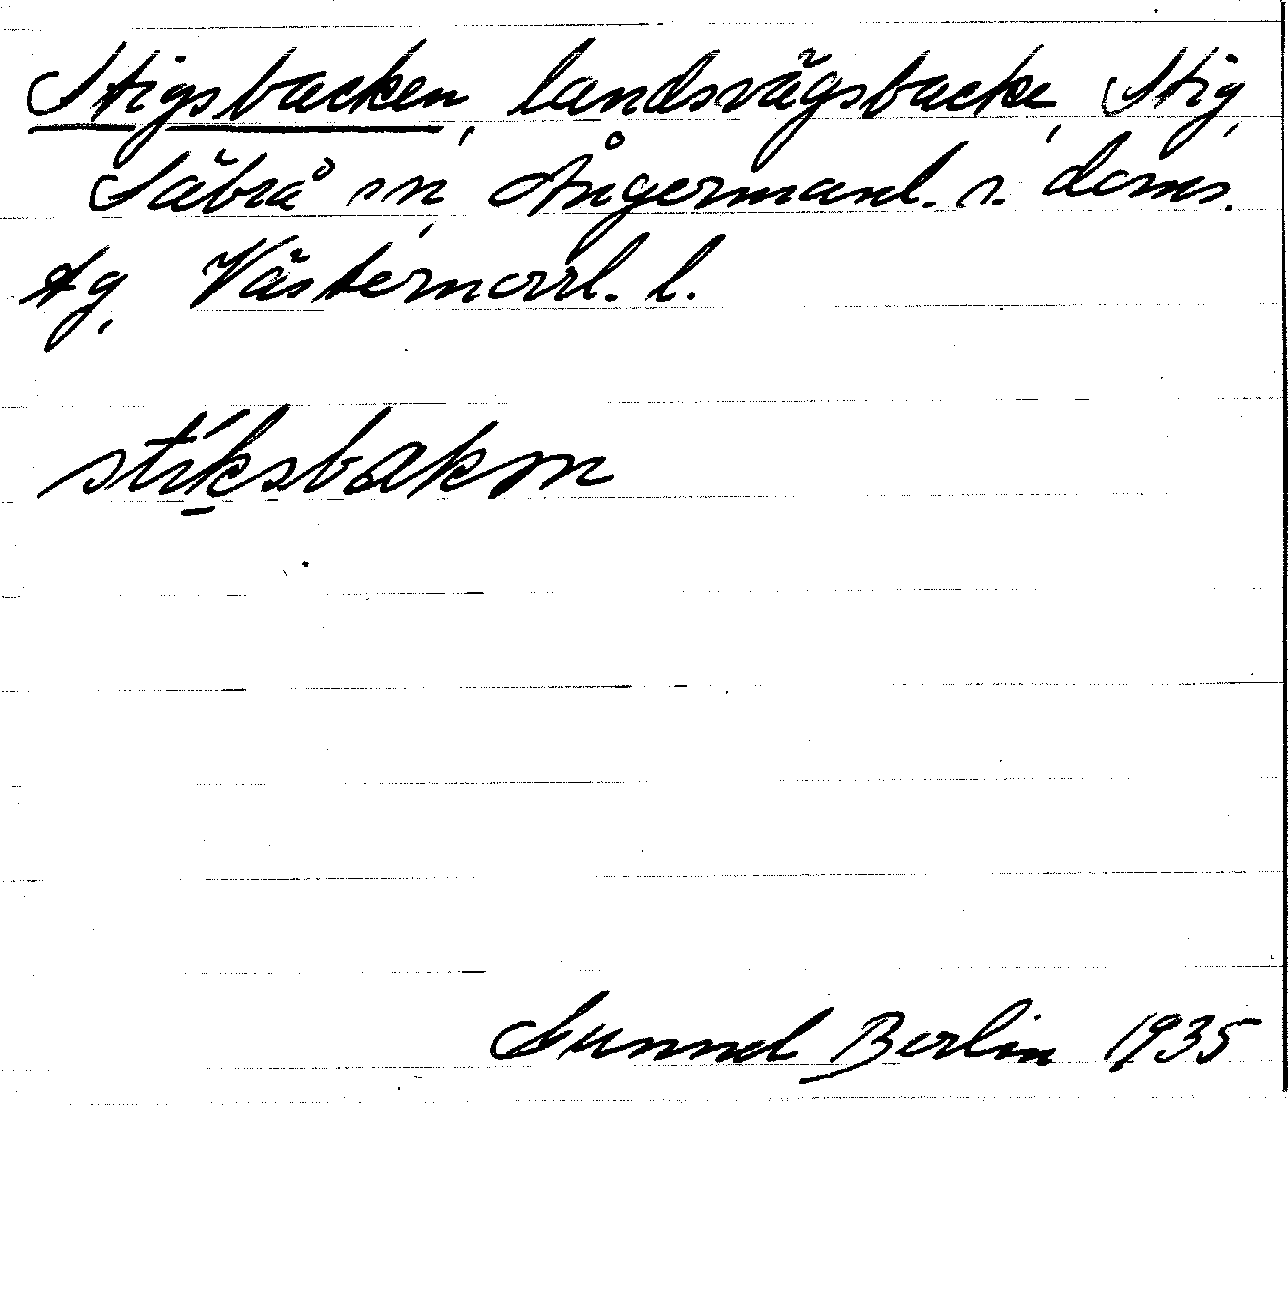 Stigsbacken, landsvägsbacke, Stig,
Säbrå sn, Ångermanl. s. doms.
Ag, Västernorrl. l.
stiksbakən
Gunnel Berlin 1935